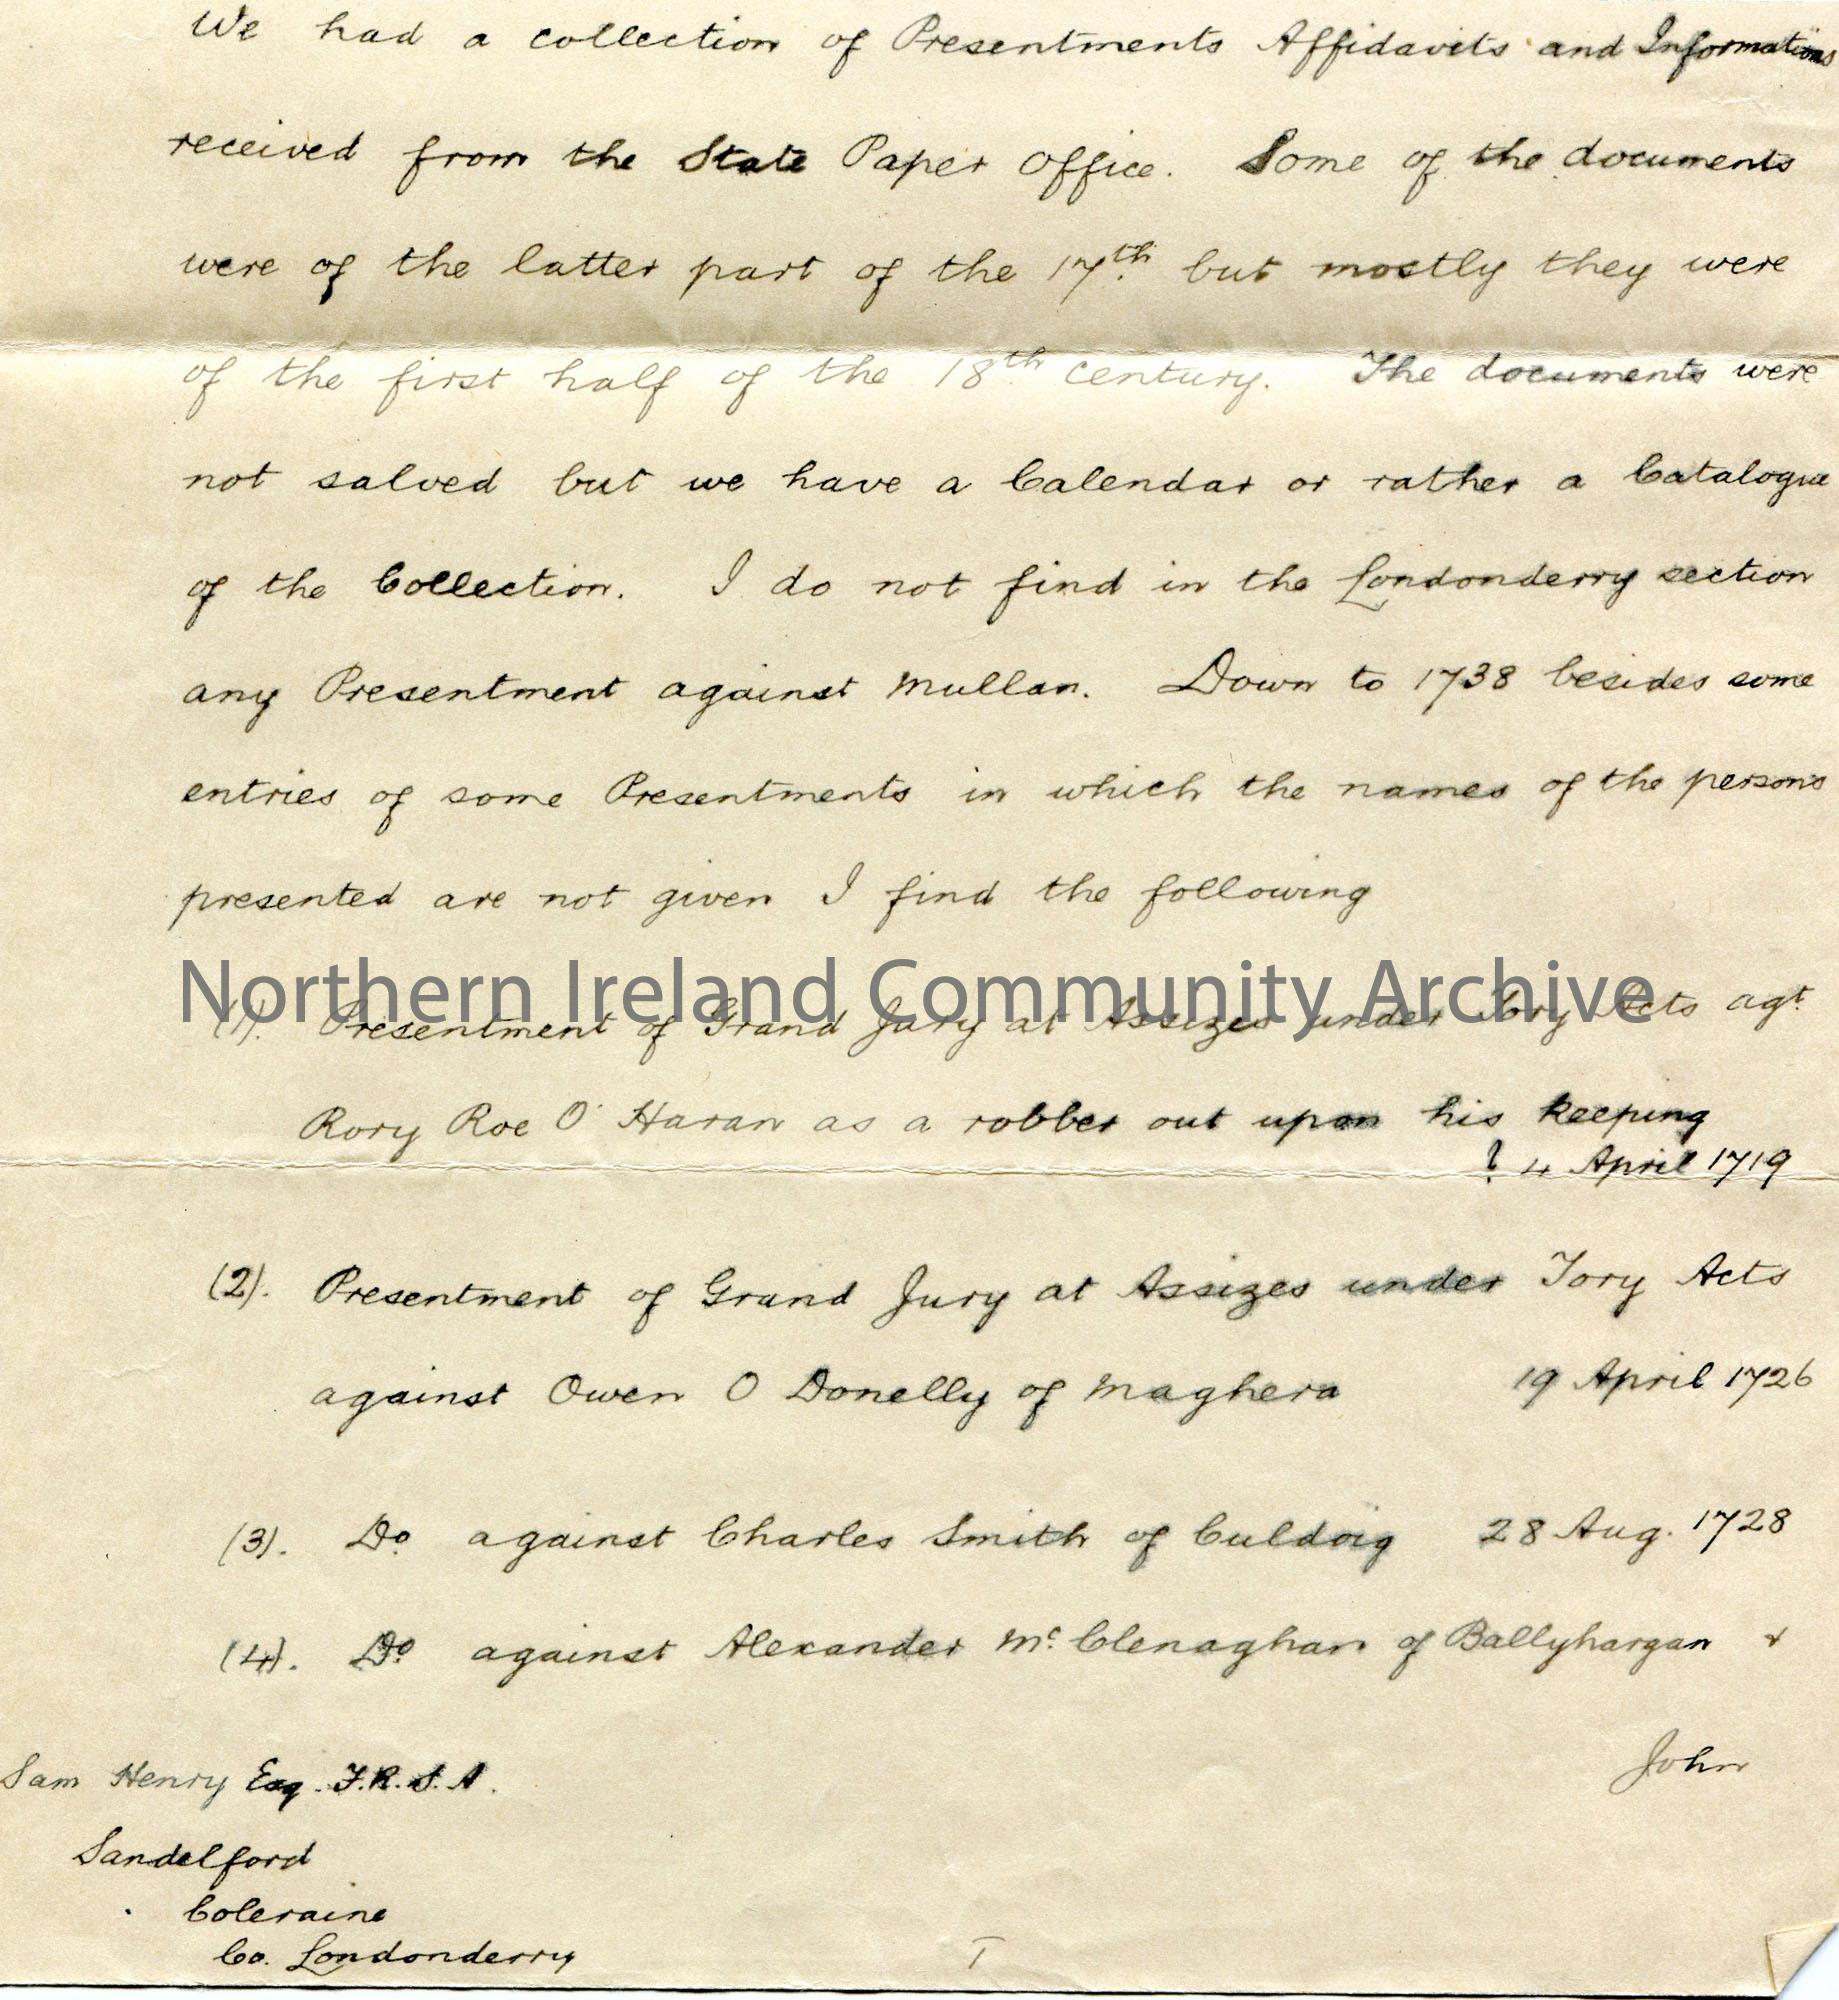 We had a collection of Presentments Affidavits and Informations
received from the State Paper Office. Some of the documents
were of the latter part of the 17th. but mostly they were
of the first half of the 18th. century. The documents were
not salved but we have a Calendar or rather a Catalogue
of the Collection. I do not find in the Londonderry section
any Presentment against Mullan. Down to 1738 besides some
entries of some Presentments in which the names of the persons
presented are not given I find the following
Northern Ireland Community Archive
(1). Presentment of Grand Jury at Assizes under Tory Acts agt.
Rory Roe O'Haran as a robber out upon his keeping
? 4 April 1719
(2). Presentment of Grand Jury at Assizes under Tory Acts
against Owen O Donelly of Maghera 19 April 1726
(3). Do. against Charles Smith of Culdoig 28 Aug. 1728
(4). Do. against Alexander Mc. Clenaghan of Ballyhargan &
John
Sam Henry Esq. F.R.S.A.
Sandelford
Coleraine
Co. Londonderry
I